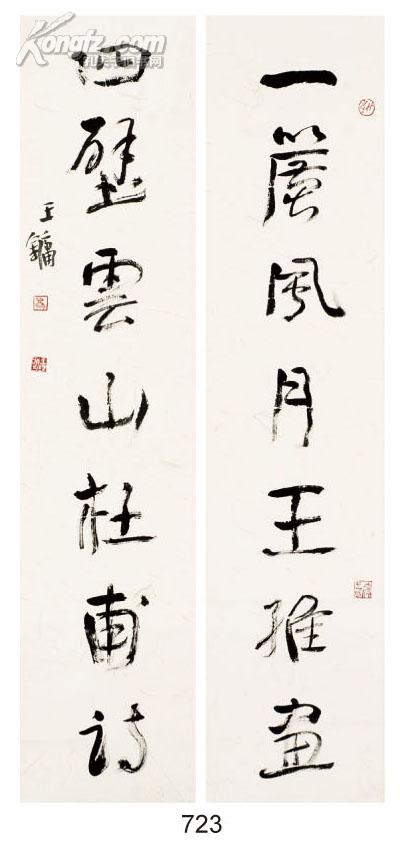 一簾風月王維畫
四壁雲山杜甫詩
王鏞
Kongfz.com
孔夫子旧书网
723